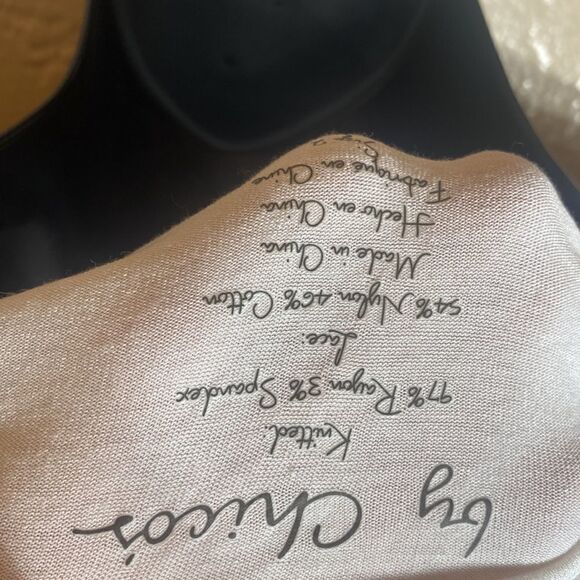 by Chico's
Knitted:
97% Rayon 3% Spandex
Lace:
54% Nylon 46% Cotton
Made in China
Hecho en China
Fabrique en Chine